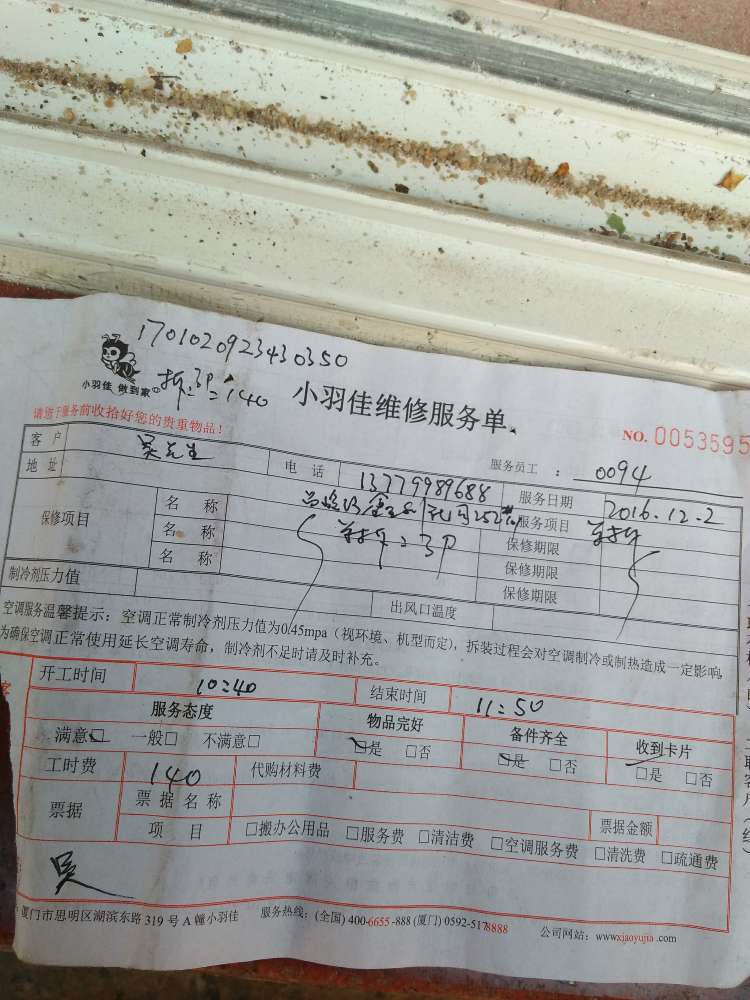 1701020923430350
小羽佳 做到家
拆3P=140
小羽佳维修服务单
请您于服务前收拾好您的贵重物品!
NO. 0053595
服务员工： 0094
客户 吴先生 电话 13779989688 服务日期 2016.12.2
地址 服务项目
保修项目 名称 保修期限
名称 保修期限
名称 保修期限
制冷剂压力值 出风口温度
空调服务温馨提示：空调正常制冷剂压力值为0.45mpa（视环境、机型而定），拆装过程会对空调制冷或制热造成一定影响，
为确保空调正常使用延长空调寿命，制冷剂不足时请及时补充。
开工时间 10:40 结束时间 11:50
服务态度 物品完好 备件齐全 收到卡片
满意□ 一般□ 不满意□ □是 □否 □是 □否 □是 □否
工时费 140 代购材料费
票据 票据名称 票据金额
项目 □搬办公用品 □服务费 □清洁费 □空调服务费 □清洗费 □疏通费
吴
厦门市思明区湖滨东路 319 号 A 幢小羽佳 服务热线：(全国) 400-6655-888 (厦门) 0592-5178888 公司网站：www.xiaoyujia.com